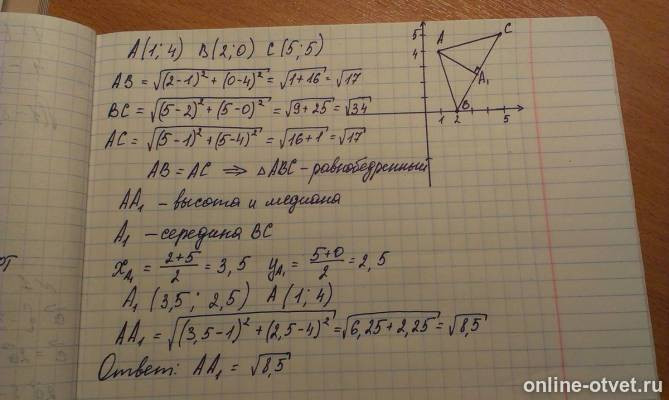 A(1; 4) B(2; 0) C(5; 5)
AB = √((2-1)² + (0-4)²) = √(1+16) = √17
BC = √((5-2)² + (5-0)²) = √(9+25) = √34
AC = √((5-1)² + (5-4)²) = √(16+1) = √17
AB = AC ⇒ △ABC - равнобедренный
AA₁ - высота и медиана
A₁ - середина BC
x_A₁ = (2+5)/2 = 3,5 y_A₁ = (5+0)/2 = 2,5
A₁ (3,5; 2,5) A(1; 4)
AA₁ = √((3,5-1)² + (2,5-4)²) = √(6,25+2,25) = √8,5
Ответ: AA₁ = √8,5
5
4
A
C
A₁
B
1 2 5
online-otvet.ru